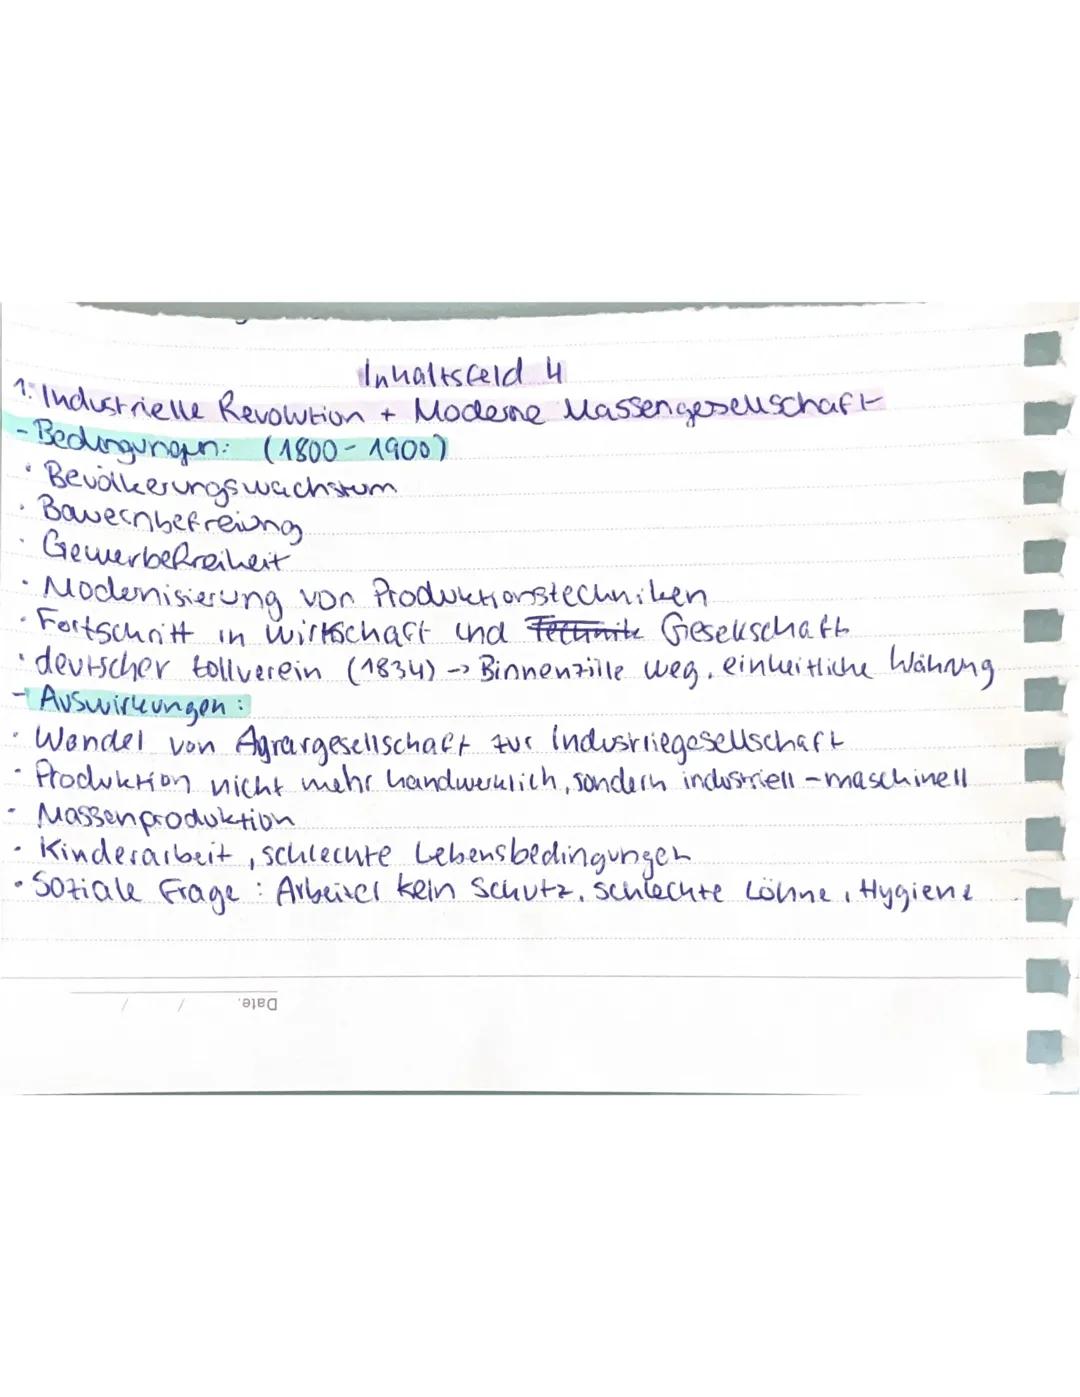 Inhaltsfeld 4
1. Industrielle Revolution + Moderne Massengesellschaft
- Bedingungen: (1800-1900)
· Bevölkerungswachstum
· Bauernbefreiung
· Gewerbefreiheit
· Modernisierung von Produktionstechniken
· Fortschritt in Wirtschaft und Technik Gesellschaft
· deutscher Zollverein (1834) -> Binnenzölle weg, einheitliche Währung
- Auswirkungen:
· Wandel von Agrargesellschaft zur Industriegesellschaft
· Produktion nicht mehr handwerklich, sondern industriell - maschinell
· Massenproduktion
· Kinderarbeit, schlechte Lebensbedingungen
· Soziale Frage: Arbeiter kein Schutz, schlechte Löhne, Hygiene
Date. / /